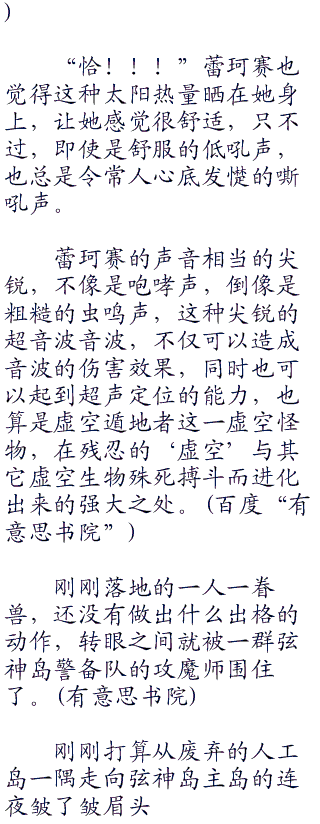 )
“恰！！！”蕾珂赛也
觉得这种太阳热量晒在她身
上，让她感觉很舒适，只不
过，即使是舒服的低吼声，
也总是令常人心底发憷的嘶
吼声。
蕾珂赛的声音相当的尖
锐，不像是咆哮声，倒像是
粗糙的虫鸣声，这种尖锐的
超音波音波，不仅可以造成
音波的伤害效果，同时也可
以起到超声定位的能力，也
算是虚空遁地者这一虚空怪
物，在残忍的‘虚空’与其
它虚空生物殊死搏斗而进化
出来的强大之处。(百度“有
意思书院”)
刚刚落地的一人一眷
兽，还没有做出什么出格的
动作，转眼之间就被一群弦
神岛警备队的攻魔师围住
了。(有意思书院)
刚刚打算从废弃的人工
岛一隅走向弦神岛主岛的连
夜皱了皱眉头